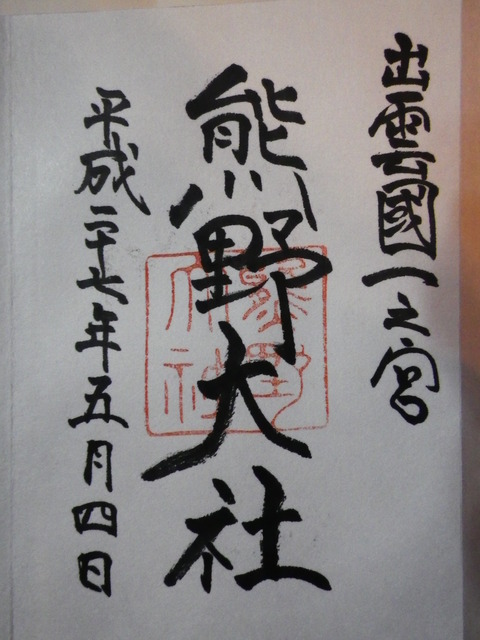 出雲國一之宮
熊野大社
平成二十七年五月四日
熊野大社